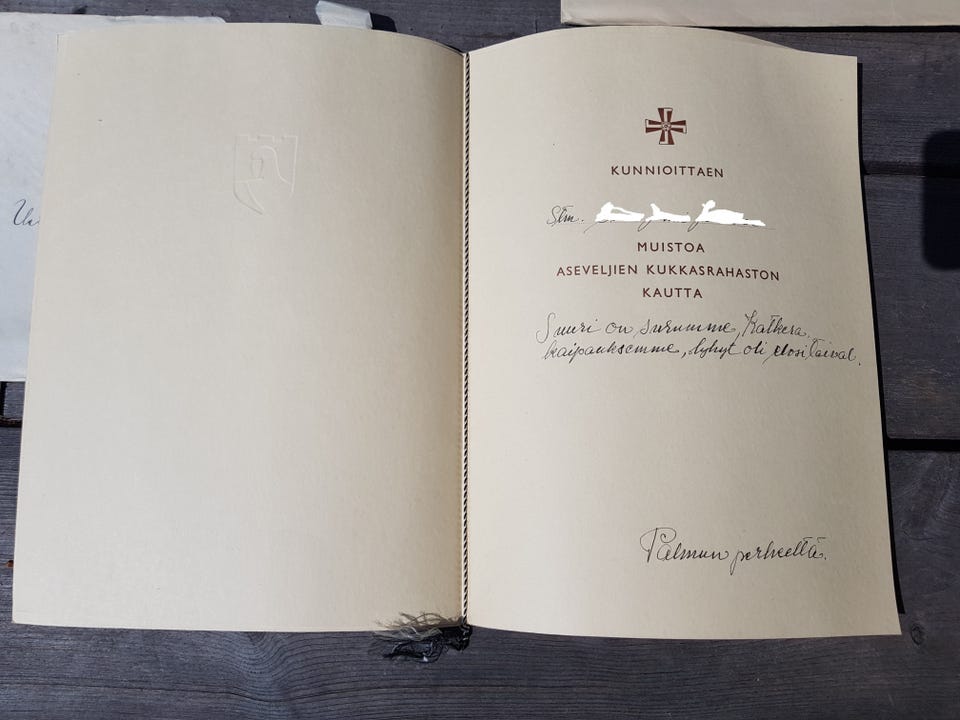 KUNNIOITTAEN
Stm.
MUISTOA
ASEVELJIEN KUKKASRAHASTON
KAUTTA
Suuri on surumme, Katkera
kaipauksemme, lyhyt oli elosi taival.
Palmun perheeltä.